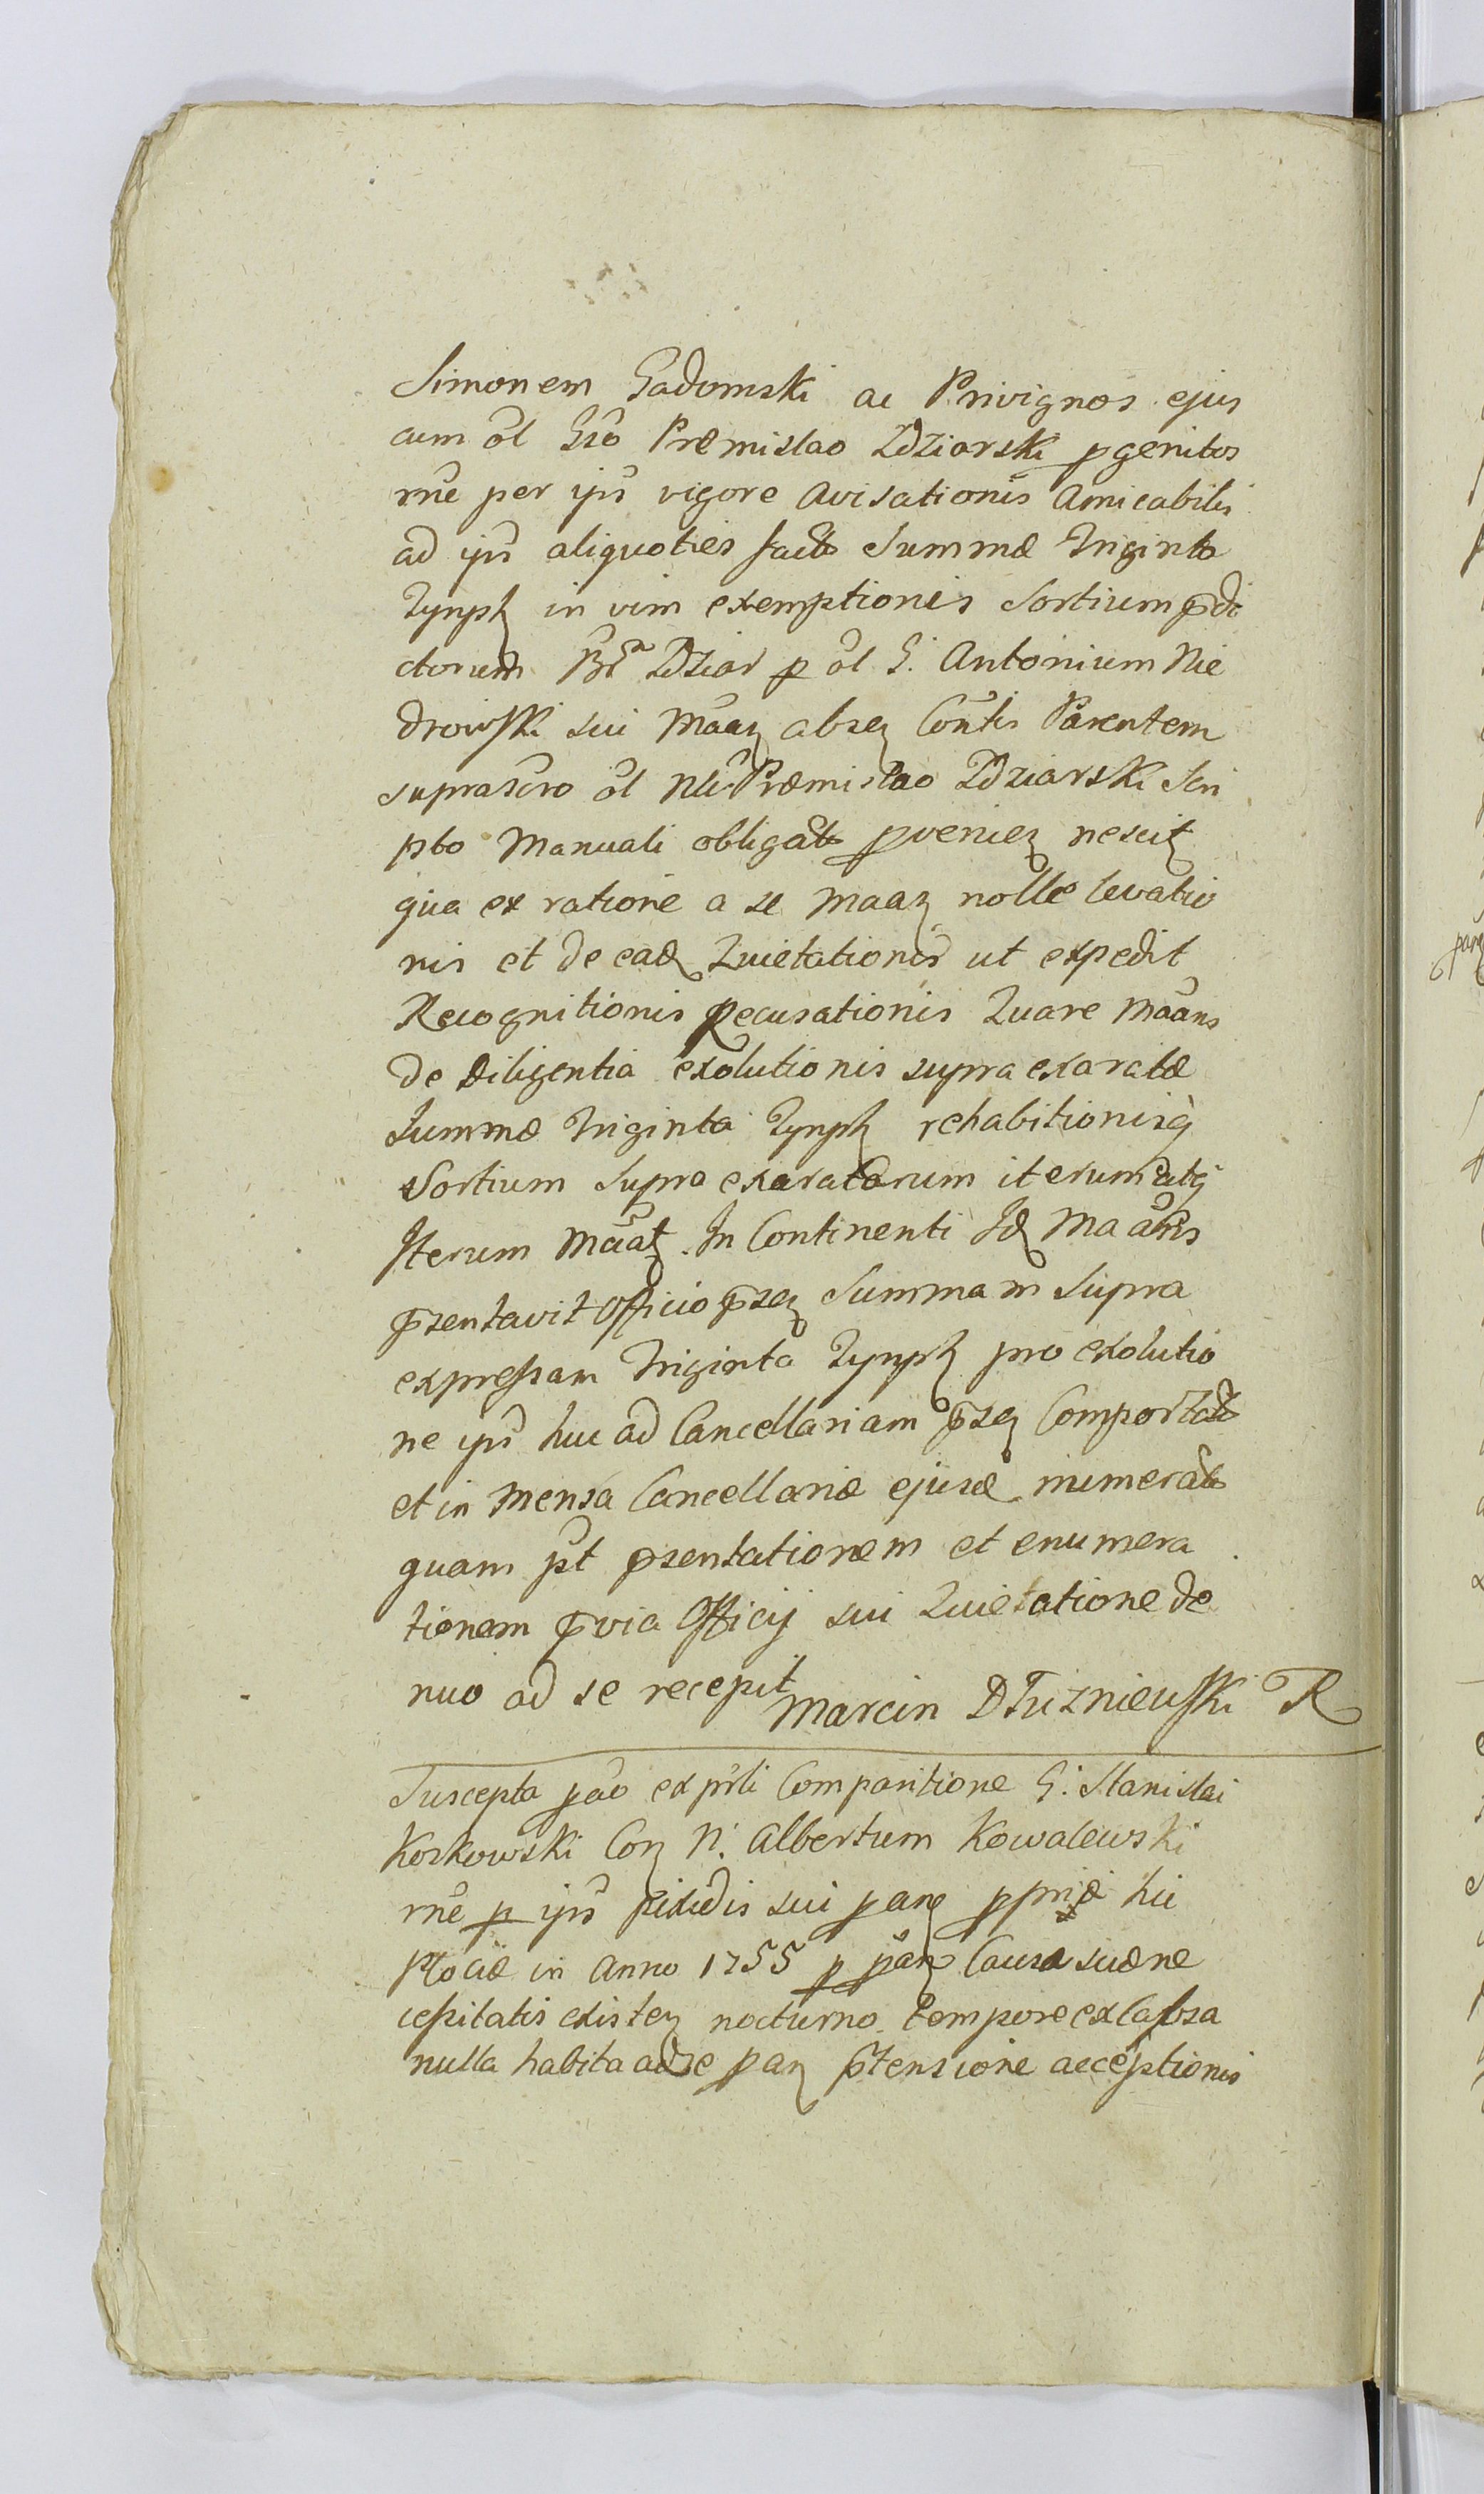 Simonem Gadomski ac Privignos ejus
cum ol Gso Præmislao Zdziarski pgenitos
rne per ips vigore avisationis amicabilis
ad ips aliquoties facto Summæ Triginta
Tynph in vim exemptionis Sortium pdi
ctorum Zdziar p ol G. Antonium Nie
drowski sui Maaz absez Contis Parentem
suprascro ol Præmislao Zdziarski Scri
pto Manuali obligato pveniez nescit
qua ex ratione a se Maaz nolle levatio
nis et de ead Quietationis ut expedit
Recognitionis recusationis Quare Maans
de Diligentia exolutionis supra exaratæ
Summæ Triginta Tynph rehabitionisq
Sortium Supra exaratarum iterum atq
Iterum Maat. In Continenti Id Maans
psentavit Officio psez Summam Supra
expressam Triginta Tynph pro exolutio
ne ips huc ad Cancellariam psez Comportat
et in Mensa Cancellariæ ejusd numerat
quam pt psentationem et enumera
tionem pvia Officij sui Quietatione de
nuo ad se recepit
Marcin Dłużniewski R
Suscepta pao ex prli Comparitione G. Stanislai
Korkowski Con N. Albertum Kowalewski
rne p ips pixidis sui pane ppriæ hic
Plociæ in Anno 1755 p pan Causa suæ ne
cessitatis existen nocturno tempore ex Capsa
nulla habita ad se pan ptensione acceptionis